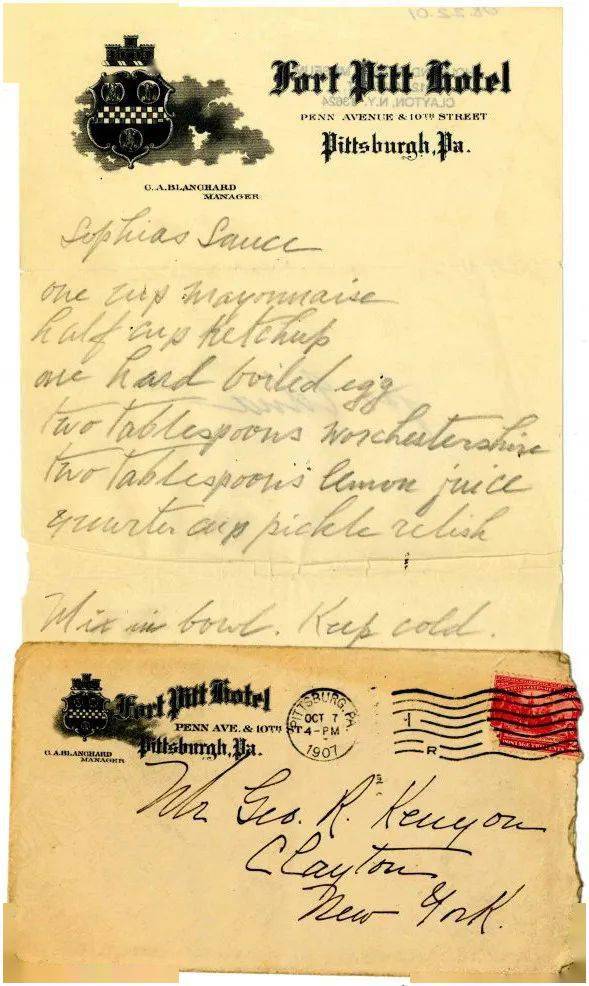 08.22.01
Fort Pitt Hotel
CLAYTON, N.Y. 13624
PENN AVENUE & 10TH STREET
Pittsburgh, Pa.
C. A. BLANCHARD
MANAGER
Sophias Sauce
one cup mayonnaise
half cup ketchup
one hard boiled egg
two tablespoons worchestershire
two tablespoons lemon juice
quarter cup pickle relish
Mix in bowl. Keep cold.
Fort Pitt Hotel
PENN AVE. & 10TH ST
Pittsburgh, Pa.
C. A. BLANCHARD
MANAGER
PITTSBURG, PA.
OCT 7
4-PM
1907
1
R
POSTAGE TWO CENTS
Mr Geo. R. Kenyon
Clayton
New York.